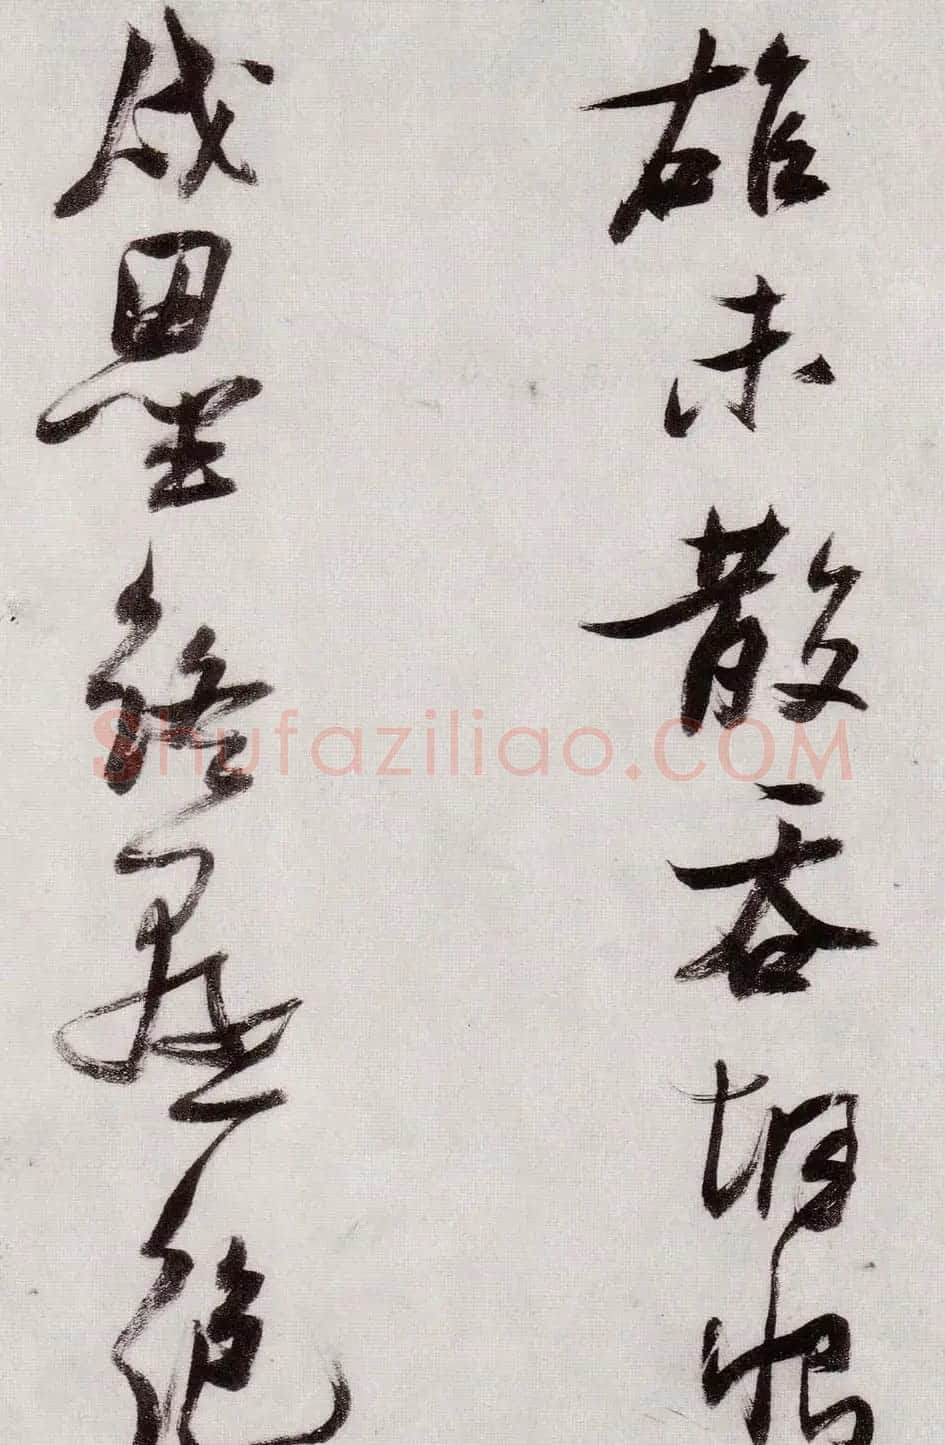 雄未散吞胡恨
戍壘終虛絕
Shufaziliao.COM